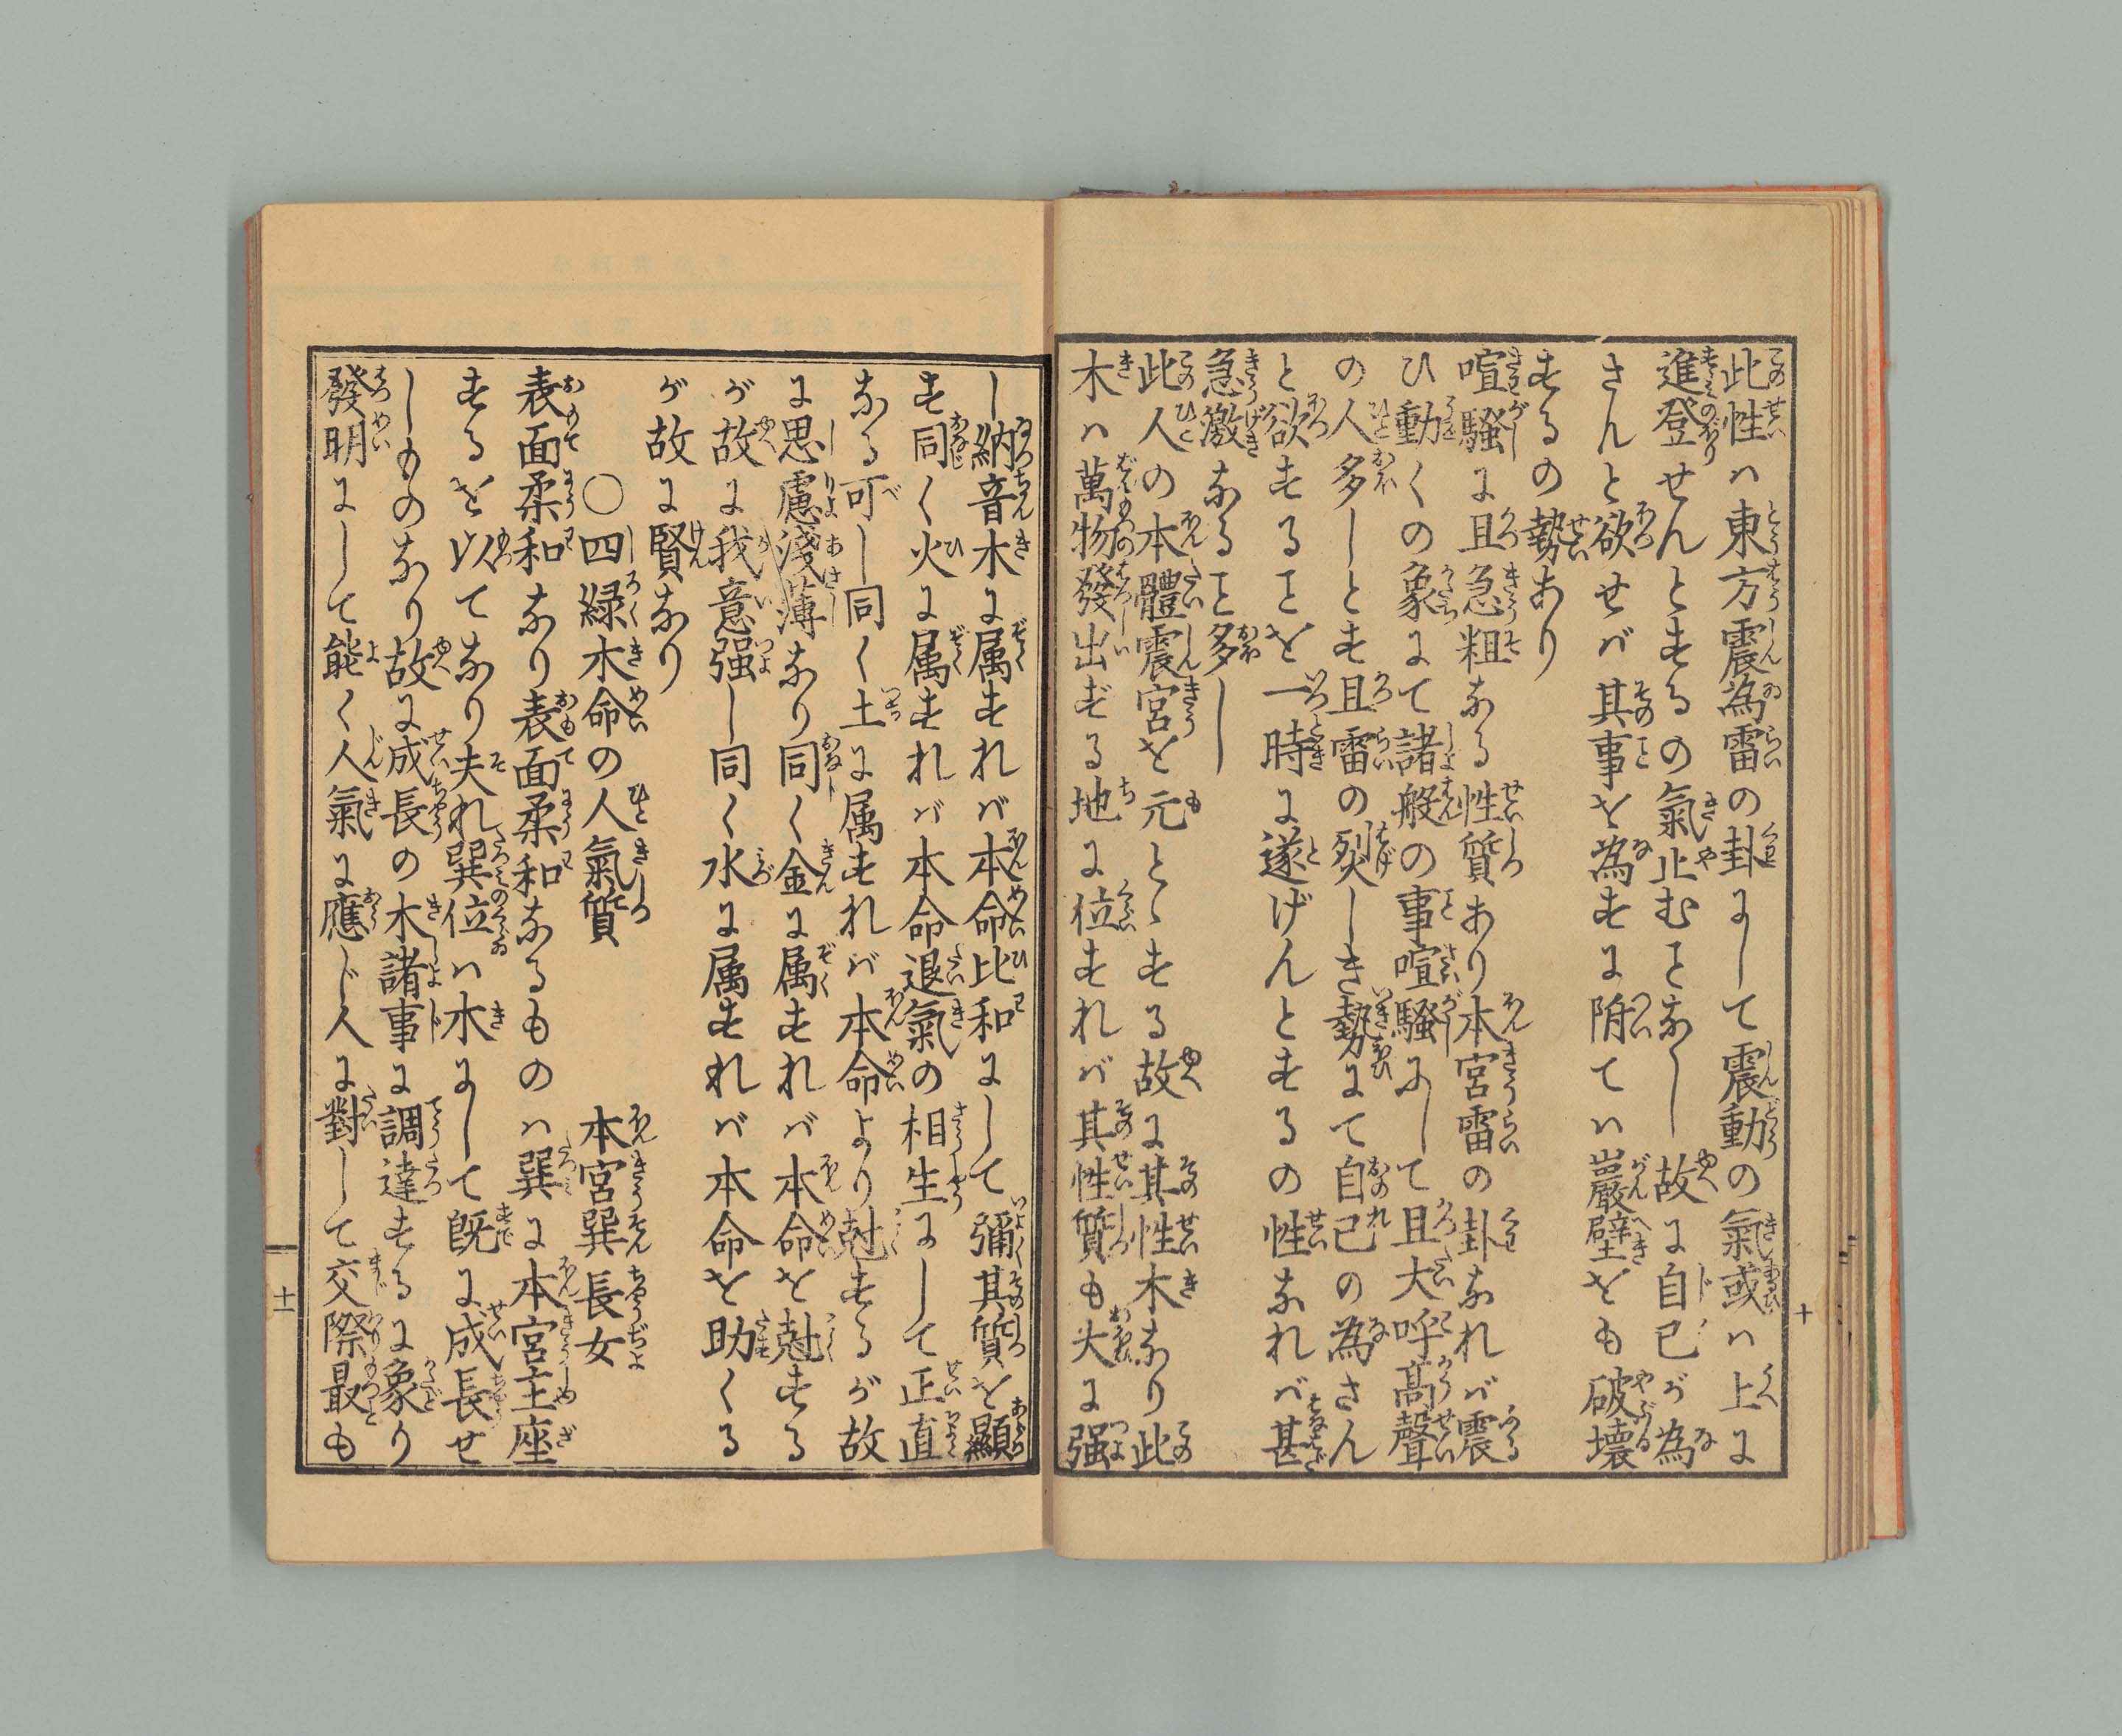 此性ハ東方震為雷の卦にして震動の氣或ハ上に
進登せんとするの氣止むこと なし故に自己が為
さんと欲せバ其事を為すに附てハ巖壁をも破壊
するの勢あり
喧騒に且急粗なる性質あり本宮雷の卦なれバ震
ひ動くの象にて諸般の事喧騒にして且大呼高聲
の人多しとす且雷の烈しき勢にて自己の為さん
と欲することを一時に遂げんとするの性なれバ甚
急激なること多し
此人の本體震宮を元とゝする故に其性木なり此
木ハ萬物發出ずる地に位すれバ其性質も大に强
十
し納音木に属すれバ本命比和にして彌其質を顯
す同く火に属すれバ本命退氣の相生にして正直
なる可し同く土に属すれバ本命より尅するが故
に思慮淺薄なり同く金に属すれバ本命を尅する
が故に我意强し同く水に属すれバ本命を助くる
が故に賢なり
〇四緑木命の人氣質 本宮巽長女
表面柔和なり表面柔和なるものハ巽に本宮主座
するを以てなり夫れ巽位ハ木にして既に成長せ
しものなり故に成長の木諸事に調達するに象り
發明にして能く人氣に應じ人に對して交際最も
十一